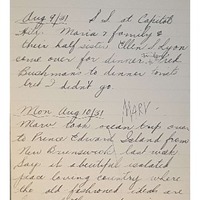 Aug 9/31 S.S. at Capitol
Hts. Maria & family &
their half sister Ellen S Lyon
came over for dinner. Fred
Bushmans to dinner
but I didn't go.
Mon Aug 10/31 MARV
Marv took ocean trip over
to Prince Edward Island from
New Brunswick last week
Say it a beautiful isolated
place loving country where
the old fashioned ideas are